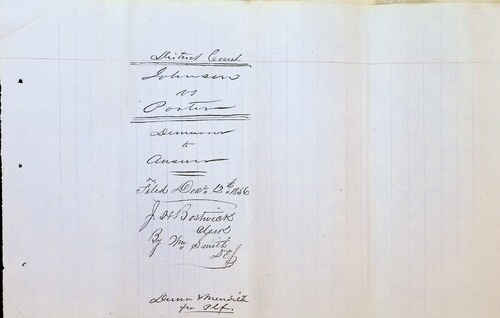 District Court
Johnson
vs
Porter
Demurrer
to
Answer
Filed Dec. 12th 1856
J. H Bostwick
Clerk
By Wm Smith
D C
Dunn & Meredith
for Plf.